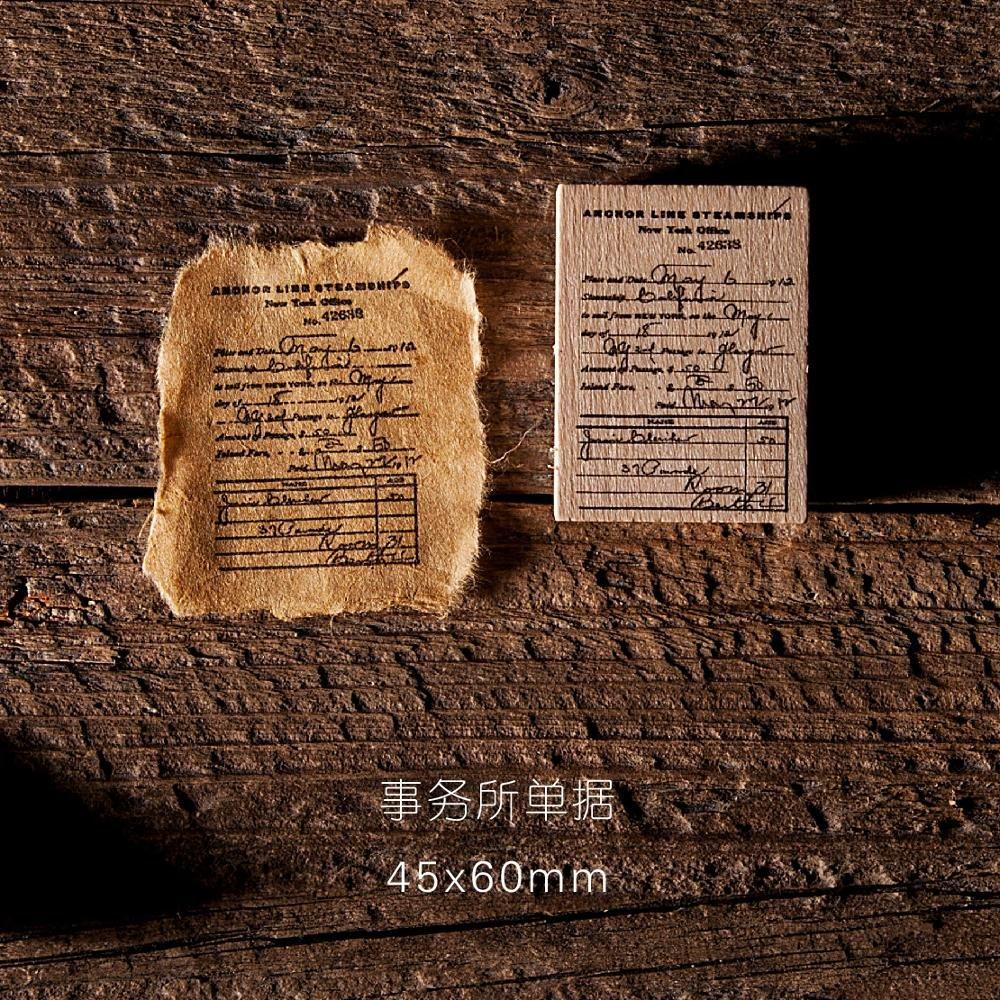 ANCHOR LINE STEAMSHIPS
New York Office
No. 42638
Place and Date May 6 1912
Steamship California
to sail from NEW YORK, on the May
day of 18 1912
Passage in Glasgow
Amount of Passage, $ 50
Inland Fare,
Date May 22
NAME AGE
37 Pounds
Room 31
Berth
ANCHOR LINE STEAMSHIPS
New York Office
No. 42638
Place and Date May 6 1912
Steamship California
to sail from NEW YORK, on the May
day of 18 1912
Passage in Glasgow
Amount of Passage, $ 50
Inland Fare,
Date May 22
NAME AGE
37 Pounds
Room 31
Berth
事务所单据
45x60mm